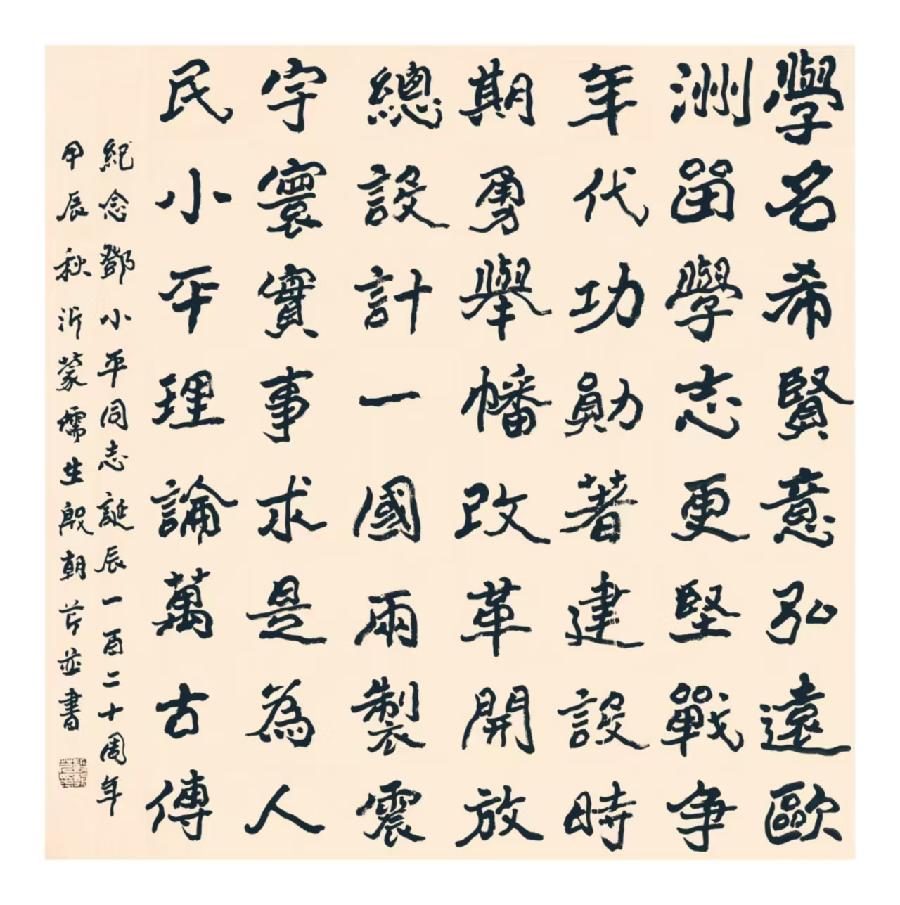 學名希賢意弘遠歐
洲留學志更堅戰爭
年代功勛著建設時
期勇舉幡改革開放
總設計一國兩製震
宇寰實事求是為人
民小平理論萬古傳
紀念鄧小平同志誕辰一百二十周年
甲辰秋沂蒙儒生殷朝芹並書